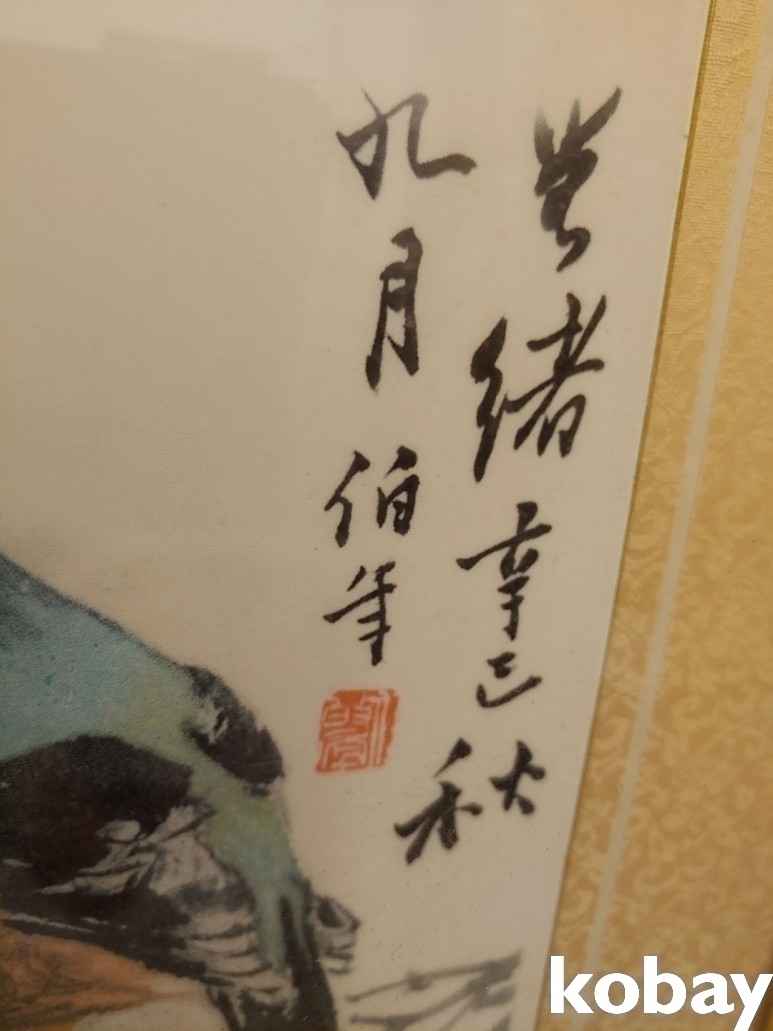 光緒辛巳秋
九月伯年
kobay